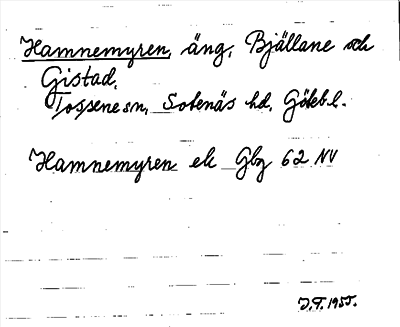 Hamnemyren, äng, Bjällane och
Gistad,
Tossene sn, Sotenäs hd, Götebl.
Hamnemyren ek Gbg 62 NV
J.T. 1955.